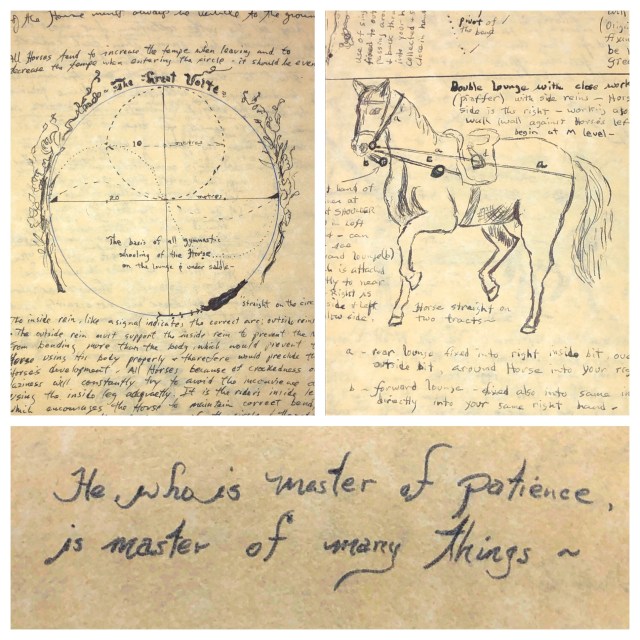 of the Horse must always be
All Horses tend to increase the tempo when leaving and to
decrease the tempo when entering the circle - it should be even
- The Great Volte -
10
20 metres.
The basis of all gymnastic
schooling of the Horse....
on the lounge & under saddle-
straight on the circ
The inside rein, like a signal indicates the correct arc; outside rein
The outside rein must support the inside rein to prevent the
from bending more than the body, which would prevent
Horse using his body properly & therefore would preclude
Horse's development - All Horses because of crookedness
laziness will constantly try to avoid the
using the inside leg adequately. It is the riders inside le
which encourages the Horse to maintain correct bend
pivot of
the bend
Double Lounge with close work
(pioffer) with side reins - Hors
side is the right - working
walk (wall against Horses left
begin at M level -
a
a
c
b
a
band of
at
SHOULDER
Left
- can
see
and lounge(b)
is attached
to near
Right as
side & left
low side.
Horse straight on
two tracts~
a - rear lounge fixed into right inside bit, ov
outside bit, around Horse into your rig
b - forward lounge - fixed also into same in
directly into your same right hand -
He who is master of patience,
is master of many things ~